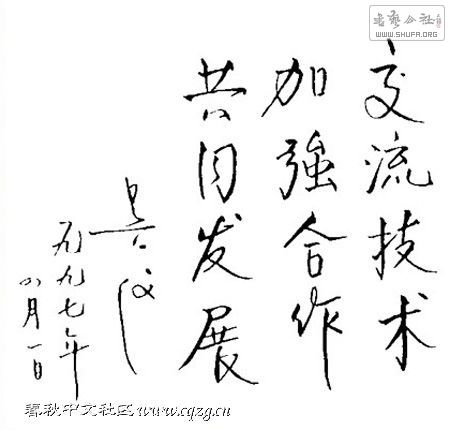 書藝公社
WWW.SHUFA.ORG
交流技术
加強合作
共同发展
吴仪
一九九七年
八月一日
春秋中文社区www.cqzg.cn